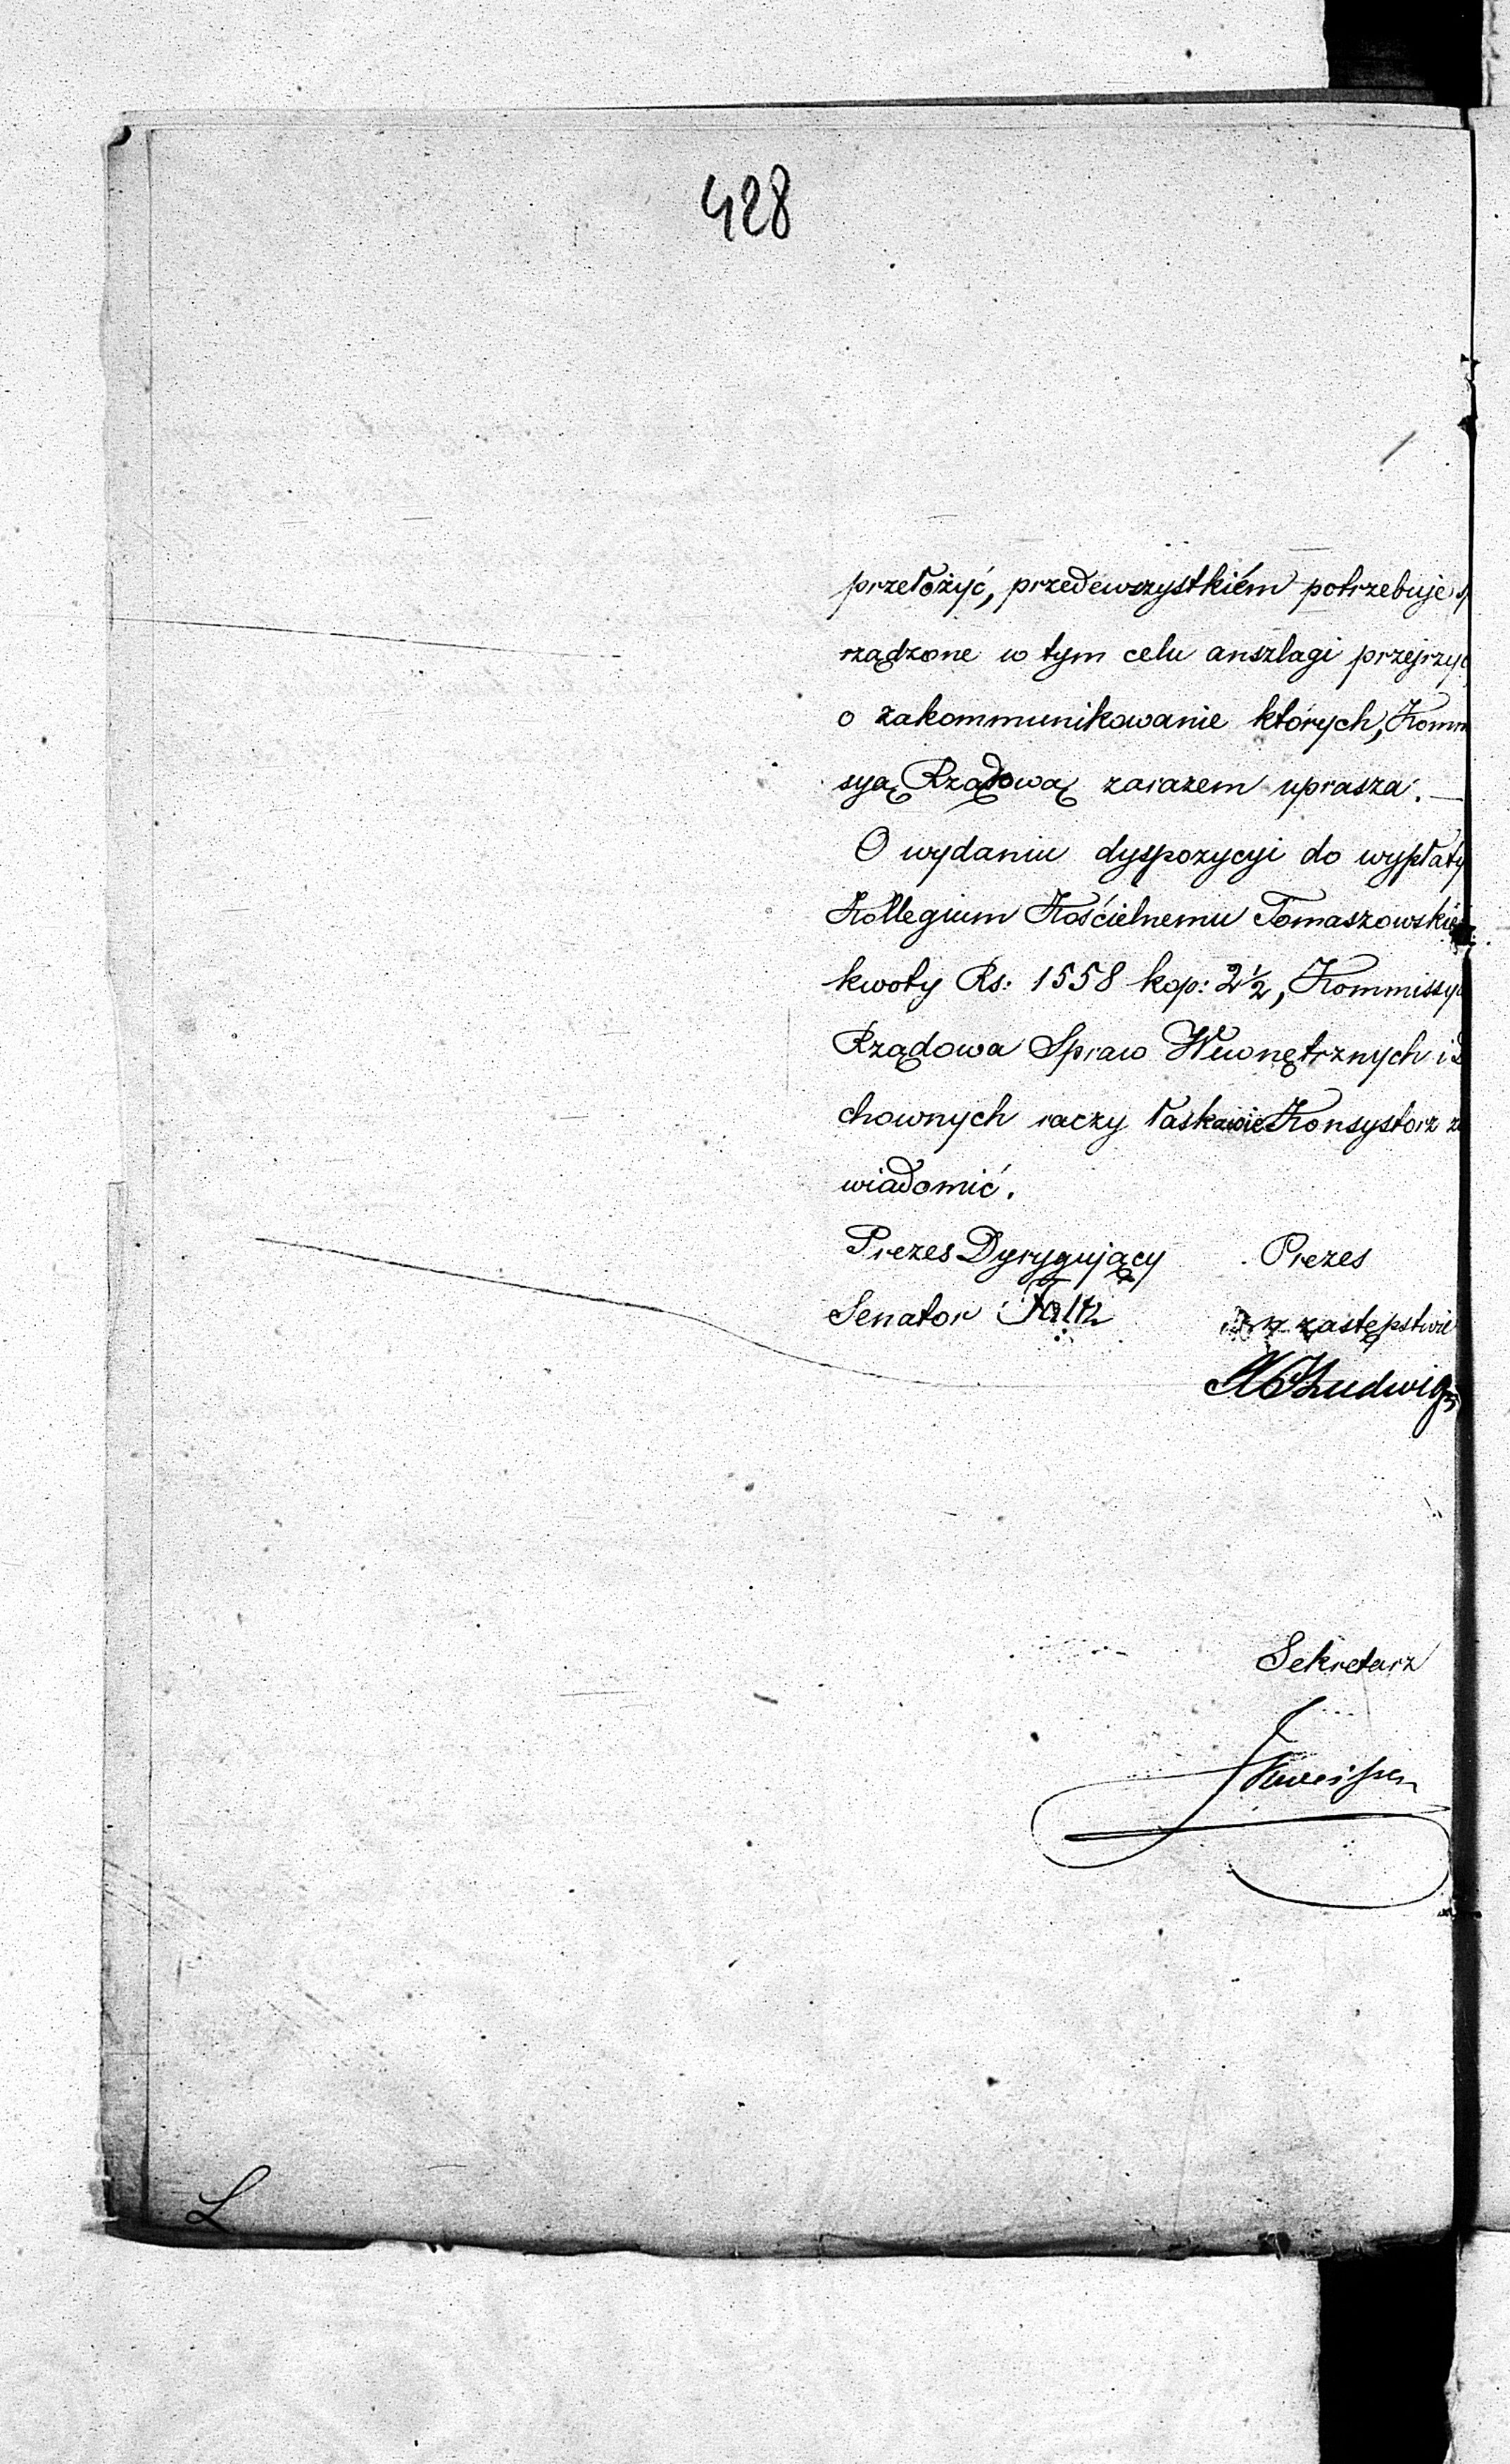 428
przełożyć, przedewszystkiém potrzebuje s
rządzone w tym celu anszlagi przejrzyć
o zakommunikowanie których, Komm
syą Rządową zarazem uprasza. —
O wydaniu dyspozycyi do wypłaty
Kollegium Kościelnemu Tomaszowskie
kwoty Rs: 1558 kop: 2½, Kommissya
Rządowa Spraw Wewnętrznych i D
chownych raczy łaskawie Konsystorz za
wiadomić.
Prezes Dyrygujący Prezes
Senator w zastępstwie
Ludwig
Sekretarz
L